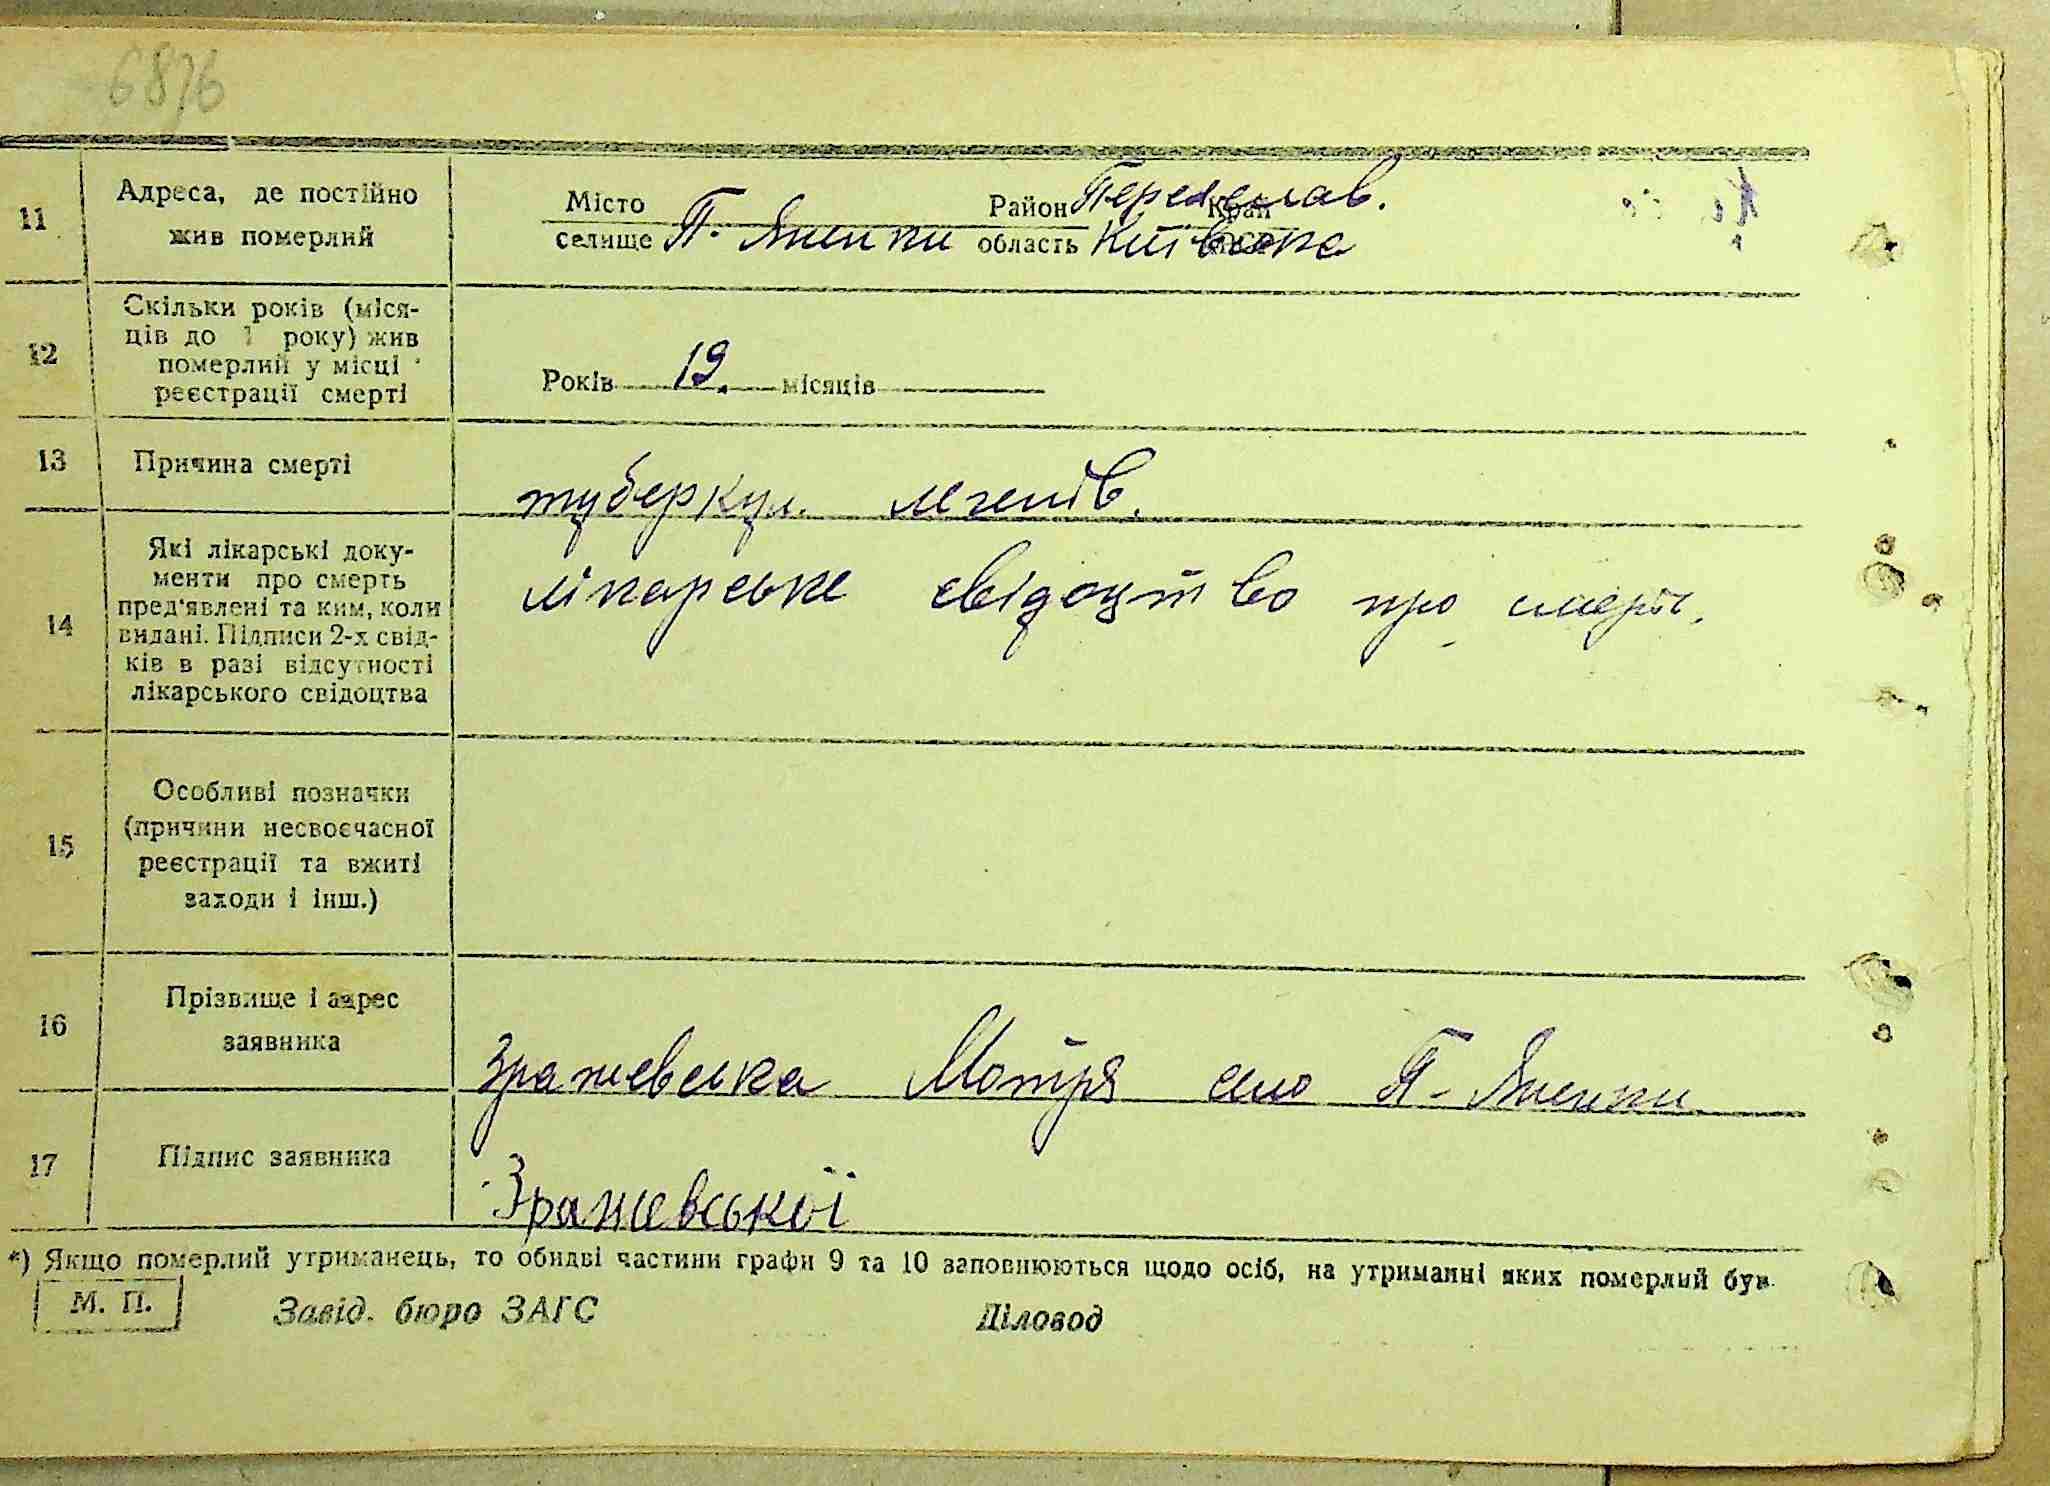 6876
11
Адреса, де постійно
жив померлий
Місто
селище П. Яненки
Район Переяслав.
область Київська
Край
12
Скільки років (міся-
ців до 1 року) жив
померлий у місці
реєстрації смерті
Років 19. місяців
13
Причина смерті
туберкул. легенів.
14
Які лікарські доку-
менти про смерть
пред'явлені та ким, коли
видані. Підписи 2-х свід-
ків в разі відсутності
лікарського свідоцтва
лікарське свідоцтво про смерть.
15
Особливі позначки
(причини несвоєчасної
реєстрації та вжиті
заходи і інш.)
16
Прізвище і адрес
заявника
Зражевська Мотря село П-Яненки
17
Підпис заявника
Зражевської
*) Якщо померлий утриманець, то обидві частини графи 9 та 10 заповнюються щодо осіб, на утриманні яких померлий був.
М. П.
Завід. бюро ЗАГС
Діловод